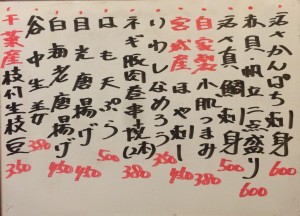 活かんぱち刺 600
赤貝・帆立二点盛り 600
活真鯛刺身 500
自家製小肌つまみ 350
宮城産ほや刺し 450
いわしなめろう 350
ネギ豚肉巻串焼(2本) 380
はも天ぷら 500
目光唐揚げ 450
白海老唐揚げ 450
谷中生姜 380
千葉産枝付生枝豆 380